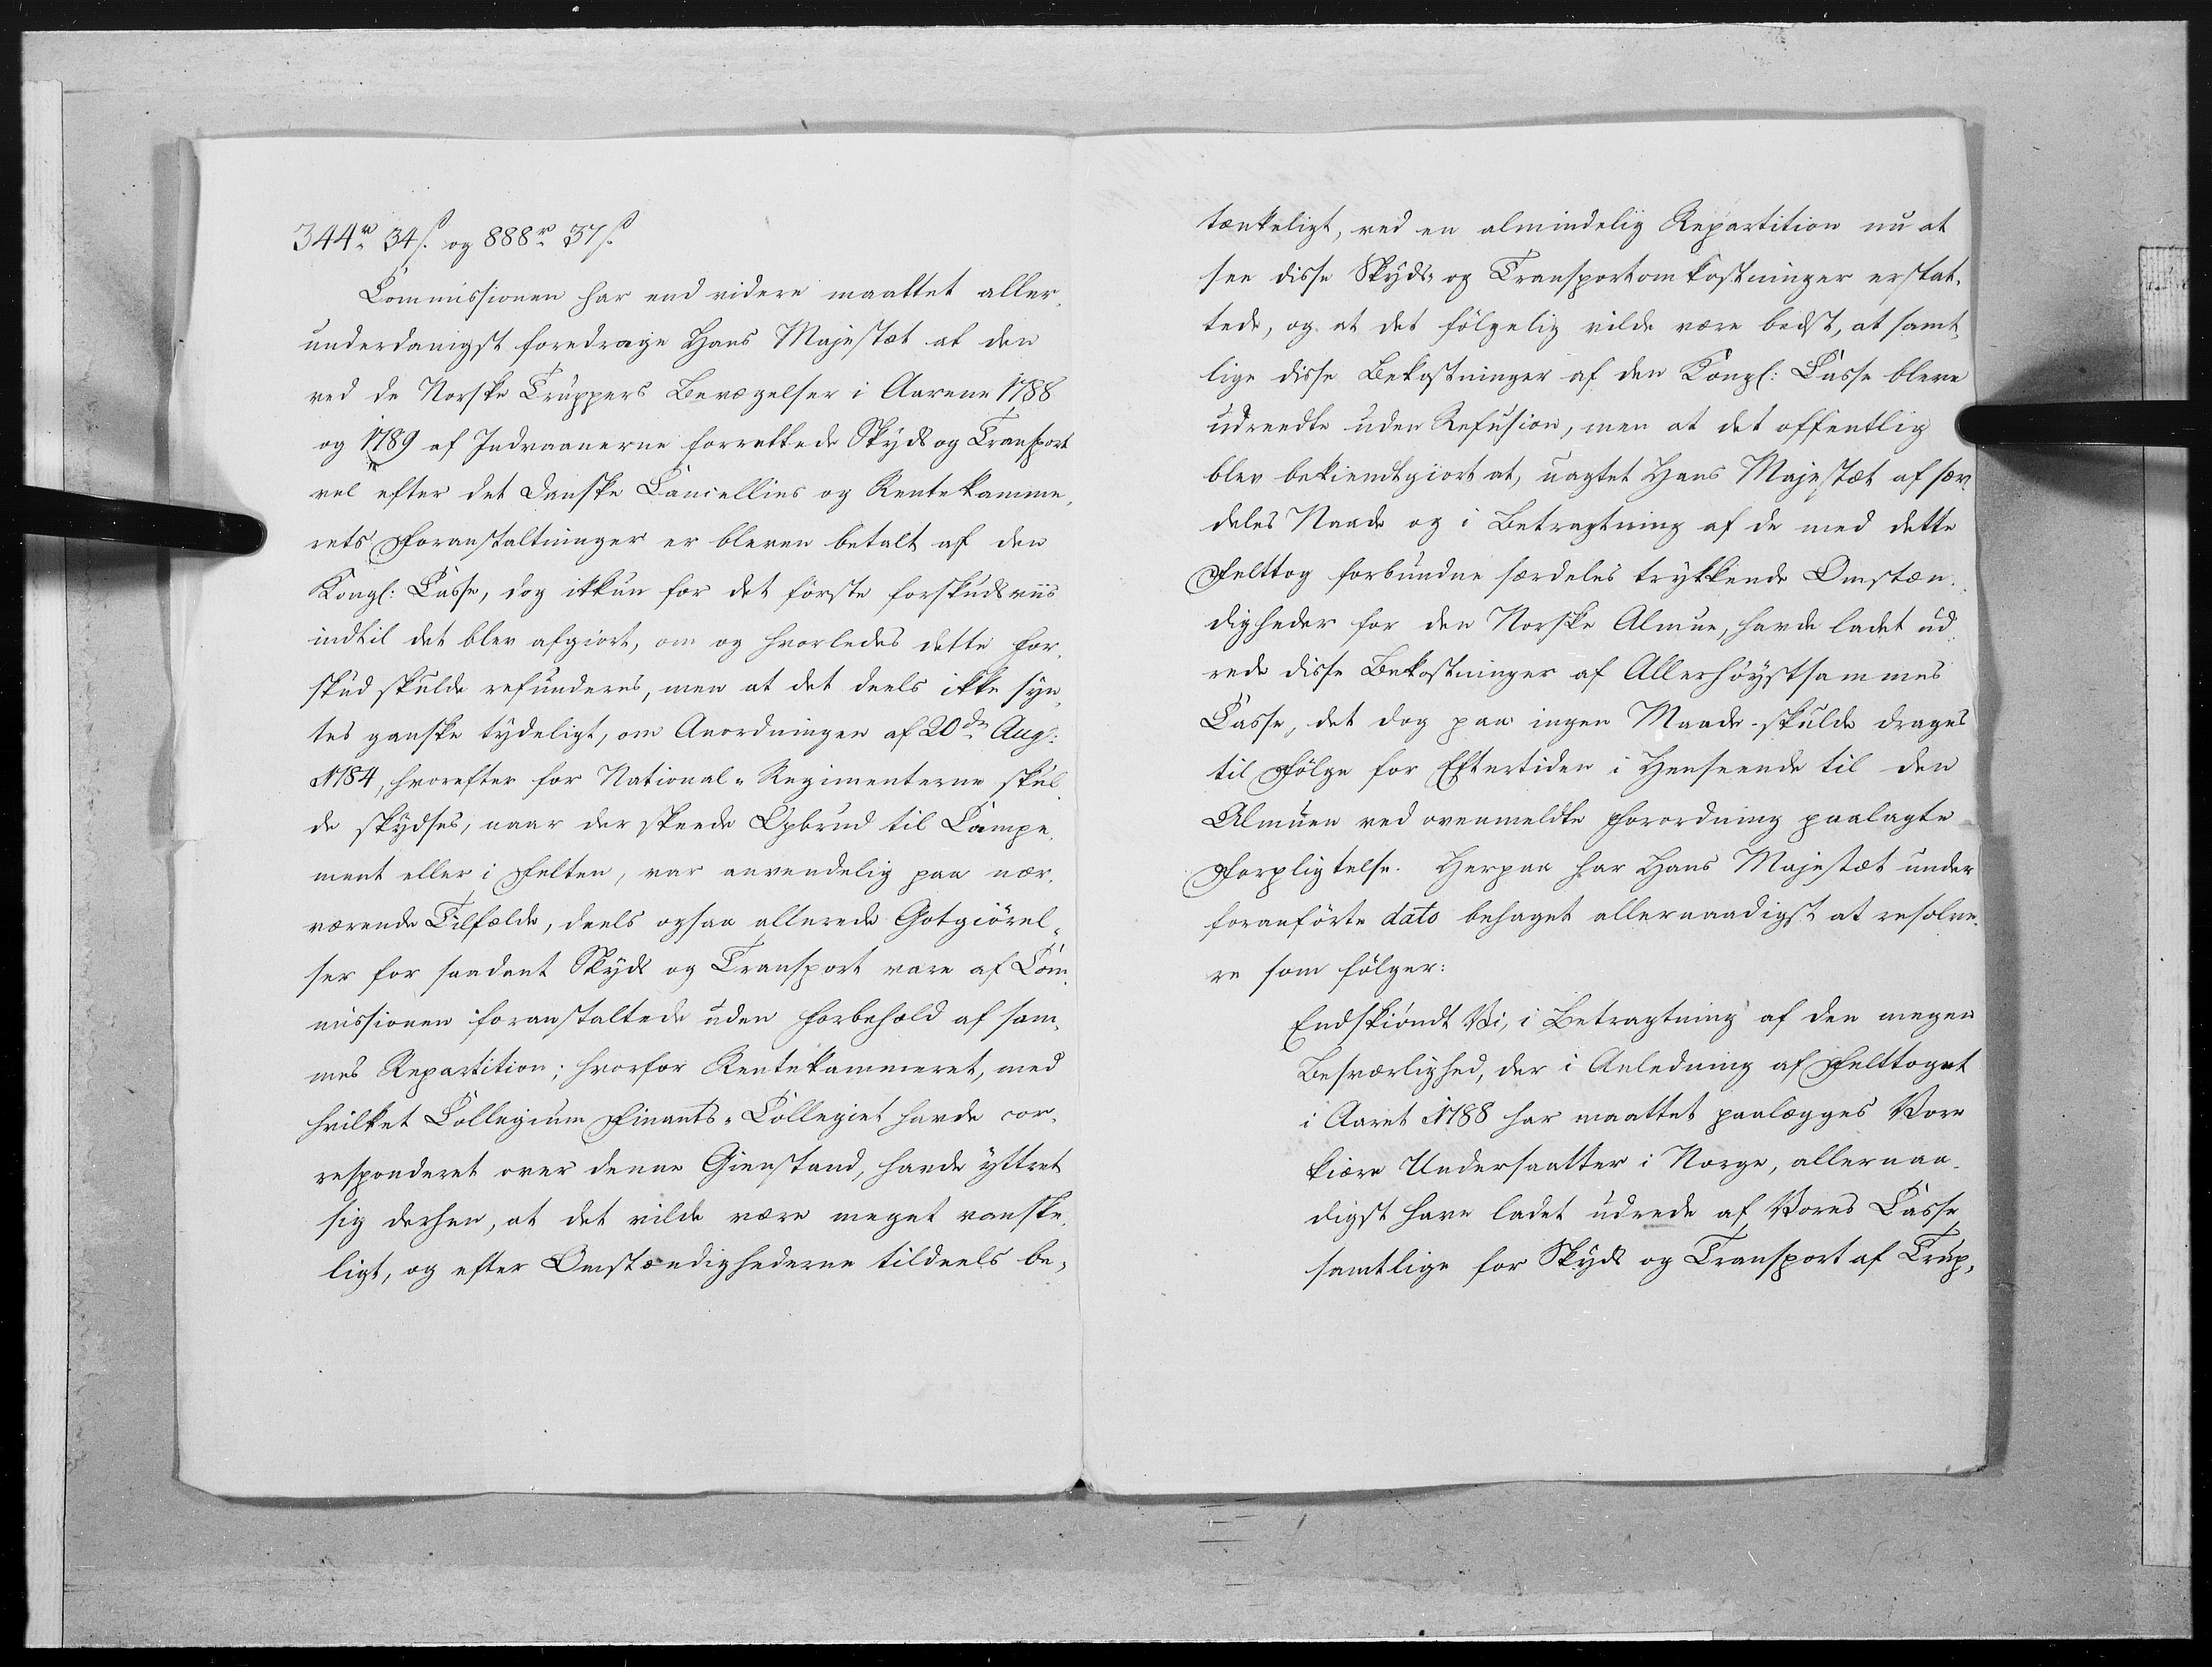 344rd 34s. og 888rd 37s.
Commissionen har end videre maattet aller-
underdanigst foredrage Hans Majestæt at den
ved de Norske Truppers Bevægelser i Aarene 1788
og 1789 af Indvaanerne forrettede Skyds og Transport
vel efter det danske Cancellies og Rentekamme-
rets Foranstaltninger er bleven betalt af den
Kongl: Casse, dog ikkun for det første forskudsviis
indtil det blev afgiort, om og hvorledes dette For-
skud skulde refunderes, men at det deels ikke syn-
tes ganske tydeligt, om Anordningen af 20de Aug:
1784, hvorefter for National-Regimenterne skul-
de skydses, naar der skeede Opbrud til Campe-
ment eller i Felten, var anvendelig paa nær-
værende Tilfælde, deels ogsaa allerede Godtgiørel-
ser for saadant Skyds og Transport vare af Com-
missionen foranstaltede uden Forbehold af sam-
mes Repartition; hvorfor Rentekammeret, med
hvilket Collegium Finants-Collegiet havde cor-
responderet over denne Gienstand, havde yttret
sig derhen, at det vilde være meget vanske-
ligt, og efter Omstændighederne tildeels be-
tænkeligt, ved en almindelig Repartition nu at
see disse Skyds- og Transportomkostninger erstat-
tede, og at det følgelig vilde være bedst, at samt-
lige disse Bekostninger af den Kongl: Casse bleve
udreedte uden Refusion, men at det offentlig
blev bekiendtgiort at, uagtet Hans Majestæt af sær-
deles Naade og i Betragtning af de med dette
Felttog forbundne særdeles trykkende Omstæn-
digheder for den Norske Almue, havde ladet ud-
rede disse Bekostninger af Allerhøystsammes
Casse, det dog paa ingen Maade skulde drages
til Følge for Eftertiden i Henseende til den
Almuen ved ovenmeldte Forordning paalagte
Forpligtelse. Herpaa har Hans Majestæt under
foranførte dato behaget allernaadigst at resolve-
re som følger:
Endskiøndt Vi, i Betragtning af den megen
Besværlighed, der i Anledning af Felttoget
i Aaret 1788 har maattet paalægges Vore
kiære Undersaatter i Norge, allernaa-
digst have ladet udrede af Vores Casse
samtlige for Skyds og Transport af Trup-